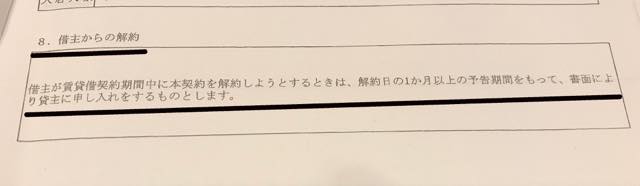 8．借主からの解約
借主が賃貸借契約期間中に本契約を解約しようとするときは、解約日の1か月以上の予告期間をもって、書面によ
り貸主に申し入れをするものとします。